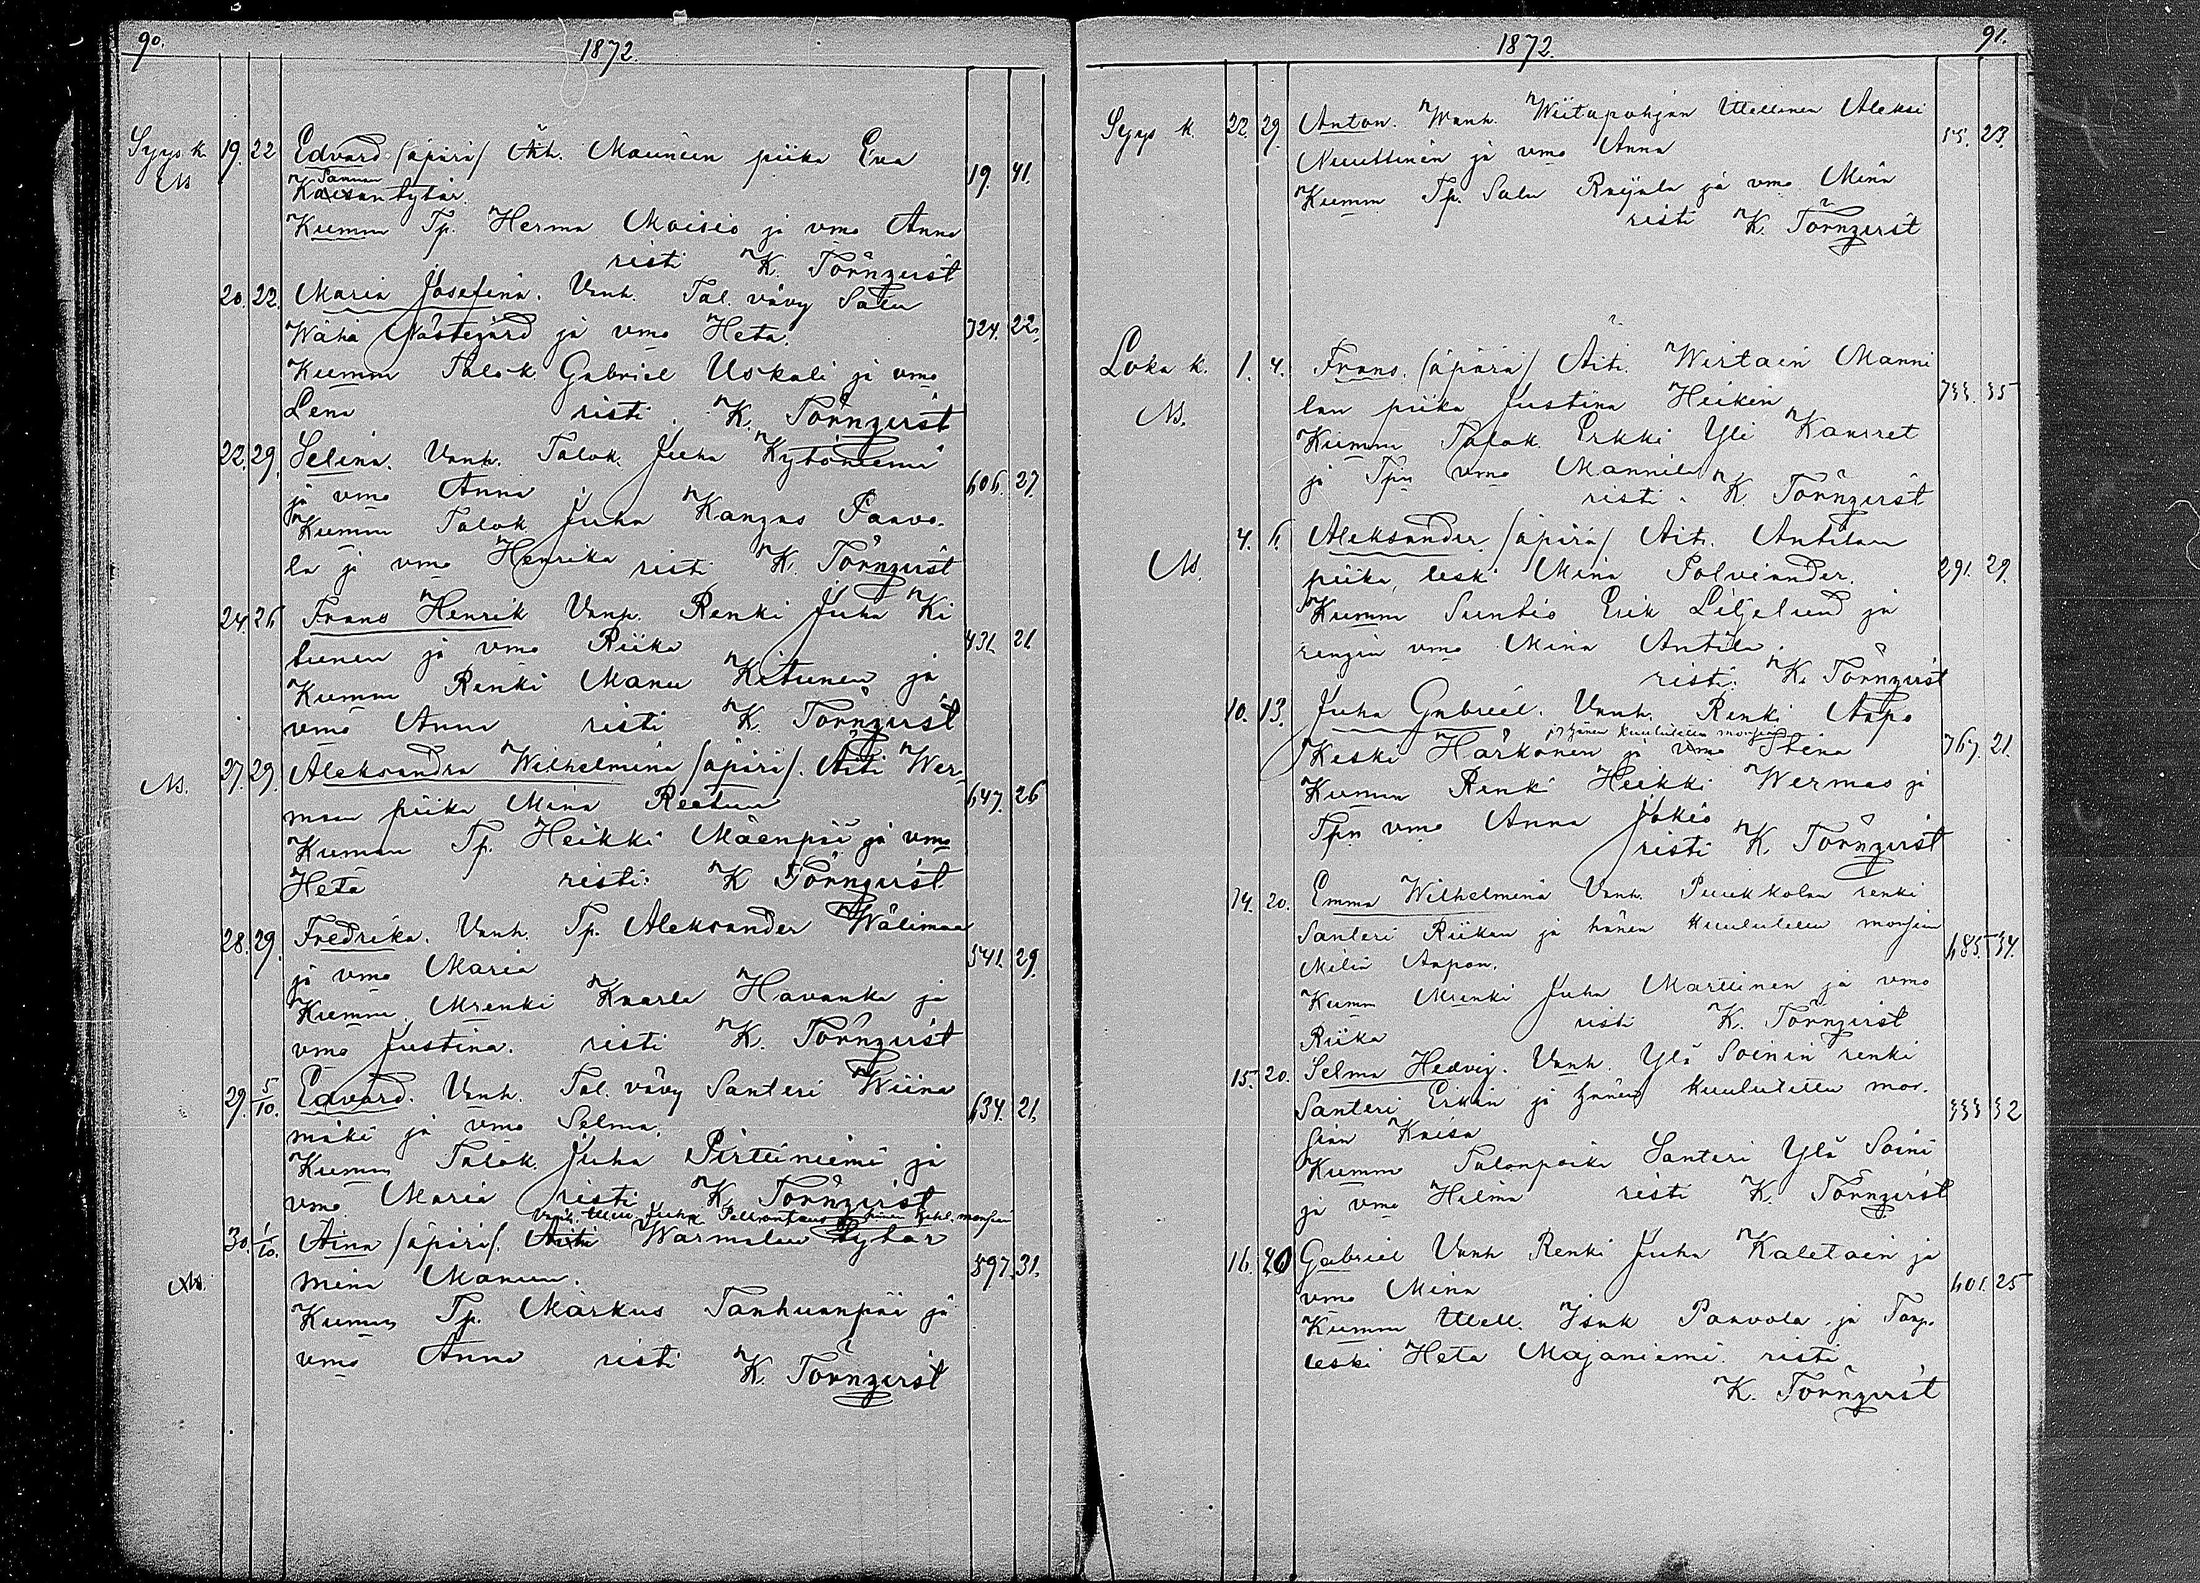 90.
1872.
Syys k. 19. 22 Edvard /äpärä/ Äit. Maunun piika Eva 19. 41.
Ns Samun
Kaisantytär.
Kumm Tp. Herma Moisio ja vmo Anna
risti K. Törnqvist
20. 22. Maria Josefina. Vanh. Tal. vävy Salu
Wähä Västegård ja vmo Heta. 724. 22.
Kumm Talok. Gabriel Uskali ja vmo
Lena risti K. Törnqvist
22. 29. Selina. Vanh. Talok. Juha Kytöniemi
ja vmo Anna 606. 27.
Kumm Talok Juha Kangas Paavo-
la ja vmo Henrika risti K. Törnqvist
24. 26 Frans Henrik Vanh. Renki Juha Ki
tunen ja vmo Riika 431. 21.
Kumm Renki Manu Kitunen ja
vmo Anna risti K. Törnqvist
Ns. 27. 29. Aleksandra Wilhelmina /äpärä/. Äiti Wer-
maan piika Mina Reetun 647. 26
Kumm Tp. Heikki Mäenpää ja vmo
Heta risti K Törnqvist
28. 29. Fredrika. Vanh. Tp. Aleksander Wälimaa
ja vmo Maria 541. 29.
Kumm. Mrenki Kaarle Havanka ja
vmo Justina. risti K. Törnqvist
29. 5/10. Edvard. Vanh. Tal. vävy Santeri Wiina
mäki ja vmo Selma. 634. 21.
Kumm Talok. Juha Pirttiniemi ja
vmo Maria risti K. Törnqvist
Vanh. Juha ja hänen kihl. morsian
30. 1/10. Aina /äpärä/. Äiti Warmalan tytär
Mina Manun. 597. 31.
Ns.
Kumm Tp. Markus Tanhuanpää ja
vmo Anna risti K. Törnqvist
91.
1872.
Syys k. 22. 29. Anton. Vanh. Wiitapohjan Ittellinen Aleksi
Nuuttinen ja vmo Anna 55. 23.
Kumm Tp. Salu Rajala ja vmo Mina
risti K. Törnqvist
Loka k. 1. 4. Frans. /äpärä/ Äiti. Wirtain Manni
lan piika Justina Heikin 733. 35
Ns.
Kumm Talok Erkki Yli Kaurret
ja Tpn vmo Mannila
risti. K. Törnqvist
4. 6. Aleksander. /äpärä/ Äiti. Antilan
Ns. piika leski Mina Polviander. 291. 29.
Kumm Suntio Erik Liljelund ja
rengin vmo Mina Antila.
risti. K. Törnqvist
10. 13. Juha Gabriel. Vanh. Renki Aapo
ja hänen kuulutettu morsian
Keski Härkönen ja vmo Stina 767. 21.
Kumm Renki Heikki Wermas ja
Tpn vmo Anna Jokio
risti K. Törnqvist
14. 20. Emma Wilhelmina Vanh. Puukkolan renki
Santeri Riikan ja hänen kuulutettu morsian
Milia Aapon. 685. 34.
Kumm Mrenki Juha Marttinen ja vmo
Riika risti K. Törnqvist
15. 20. Selma Hedvig. Vanh. Ylä Soinin renki
Santeri Erkin ja hänen kuulutettu mor-
sian Kaisa 333 32
Kumm Talonpoika Santeri Ylä Soini
ja vmo Hilma risti K. Törnqvist
16. 20 Gabriel Vanh Renki Juha Kaletoin ja
vmo Mina 601. 25
Kumm Ittell. Isak Paavola ja Torp.
leski Heta Majaniemi. risti
K. Törnqvist